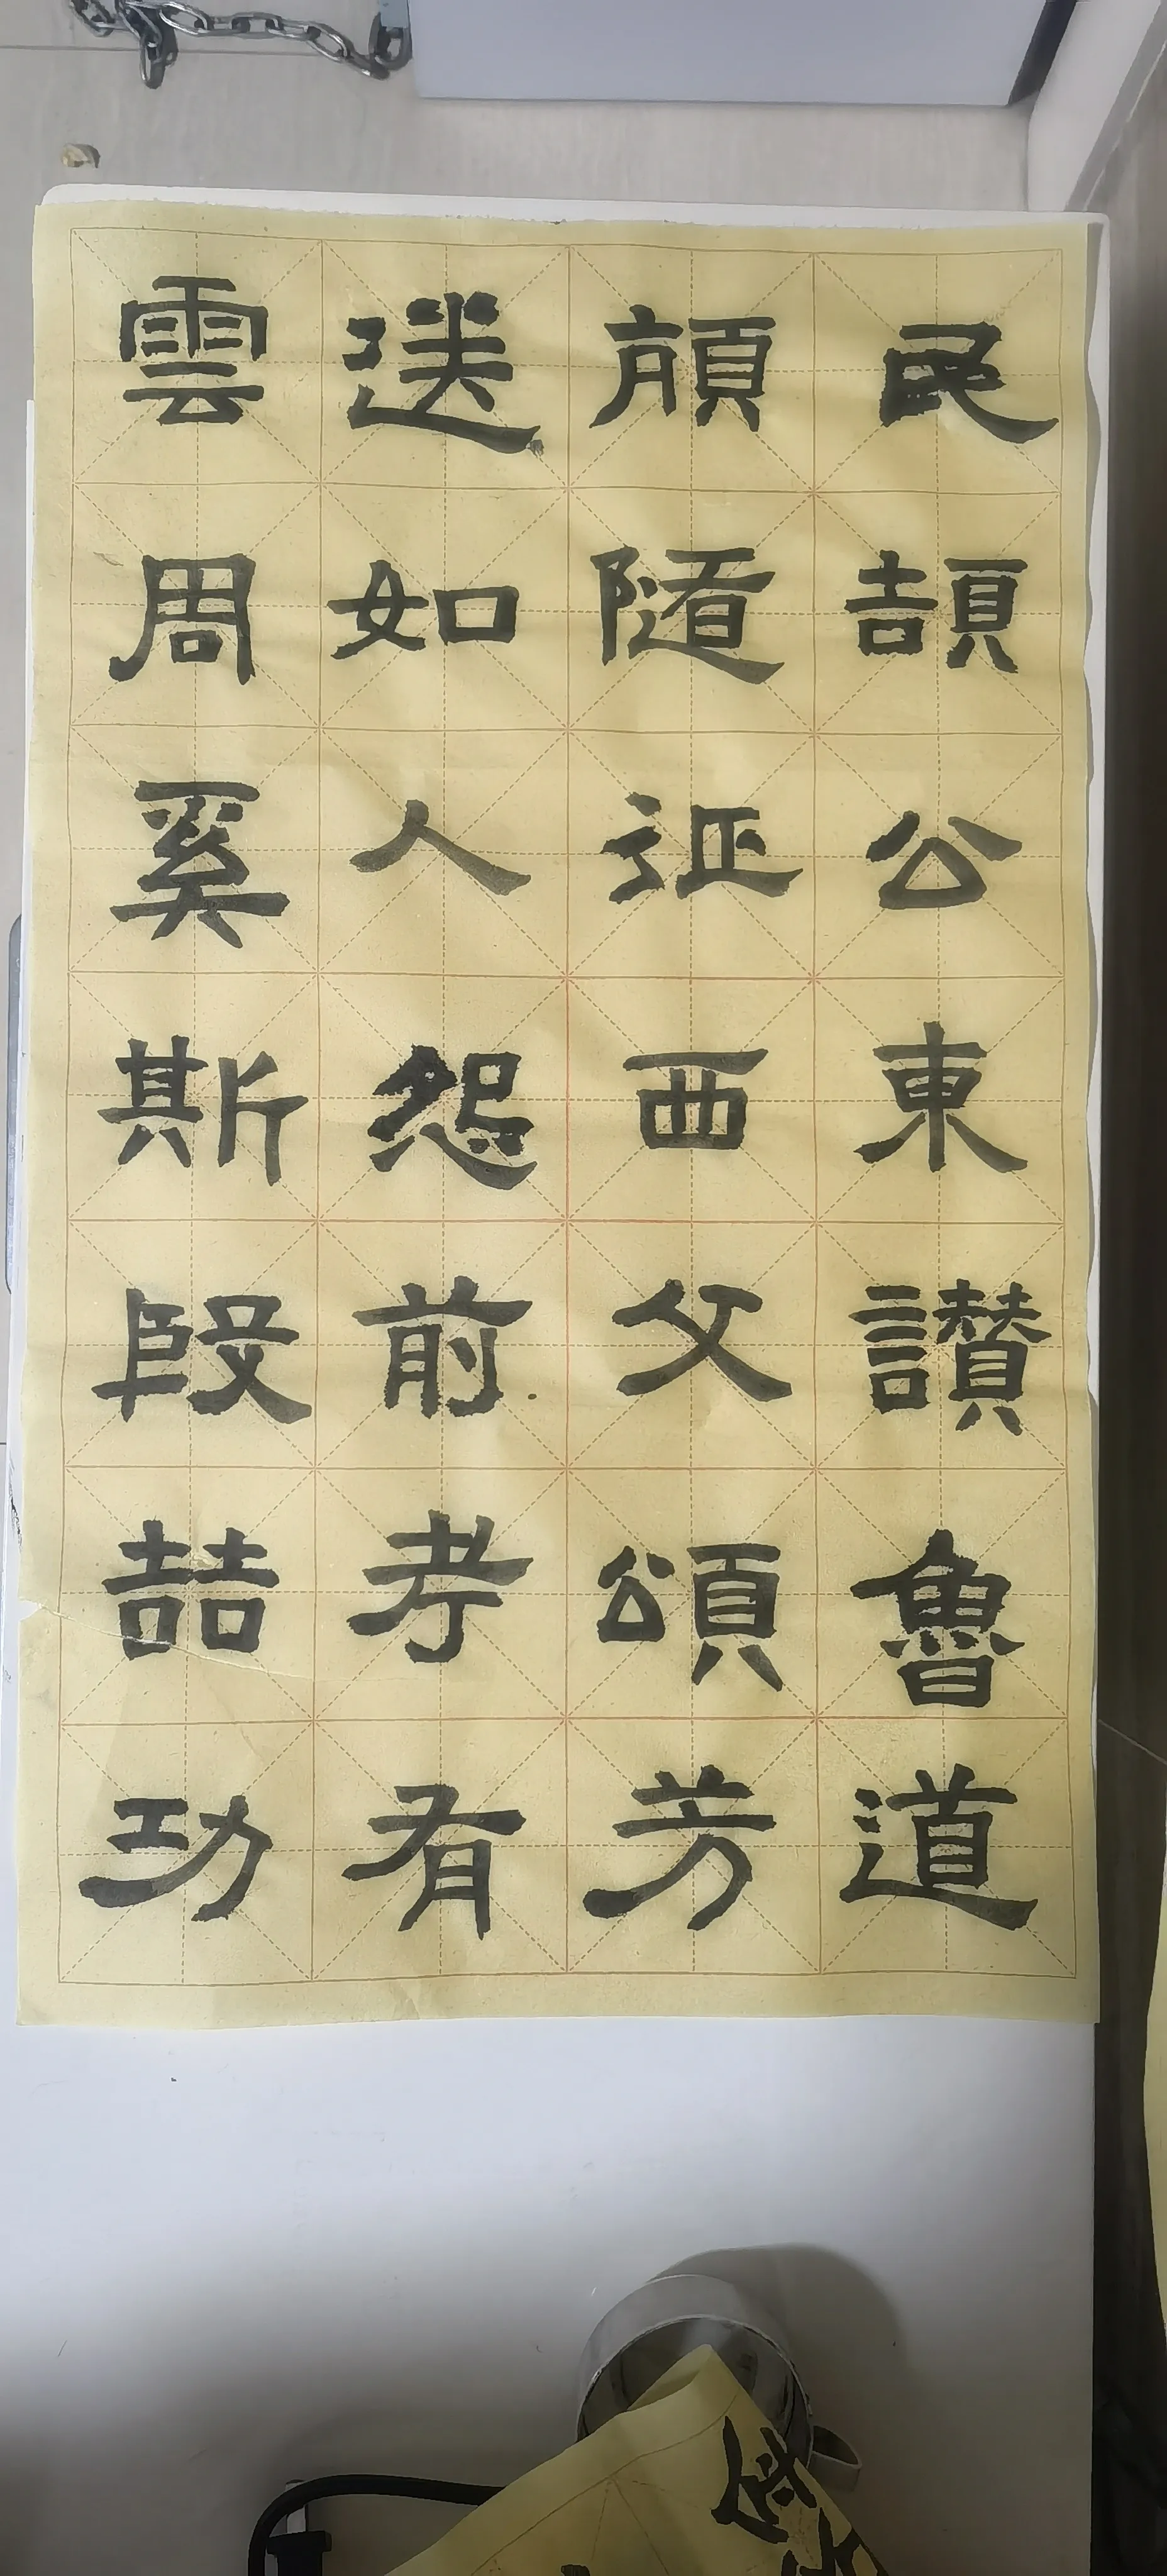 民頡公東讃魯道
頏隨征西父頌芳
送如人怨前考有
雲周奚斯殷喆功